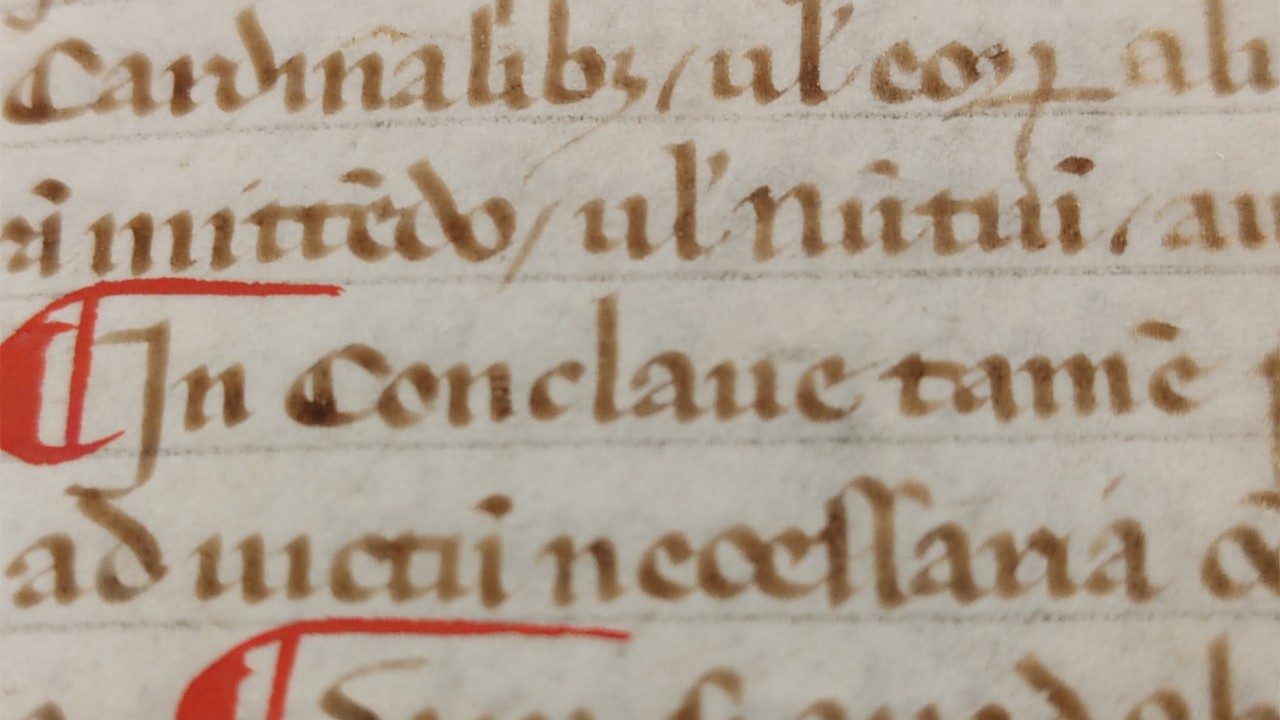 Cardinalibꝫ / ul' eoꝝ ali
ri mittēdo / ul' nūtiū / au
¶ In Conclaue tamē
ad uictū necessaria